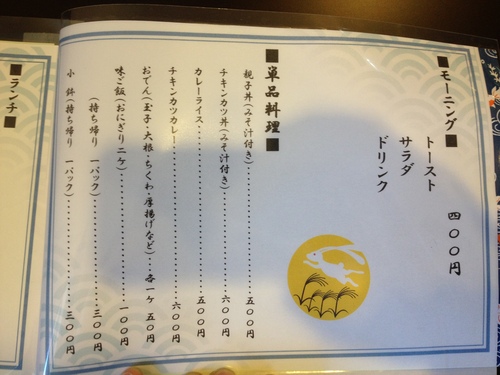 ■モーニング■
トースト
サラダ
ドリンク
四〇〇円
■単品料理■
親子丼(みそ汁付き)……………五〇〇円
チキンカツ丼(みそ汁付き)……………六〇〇円
カレーライス……………五〇〇円
チキンカツカレー……………六〇〇円
おでん(玉子・大根・ちくわ・厚揚げなど)…各一ケ 五〇円
味ご飯(おにぎり二ケ)……………一〇〇円
(持ち帰り 一パック)……………三〇〇円
小 鉢(持ち帰り 一パック)……………三〇〇円
■ランチ■